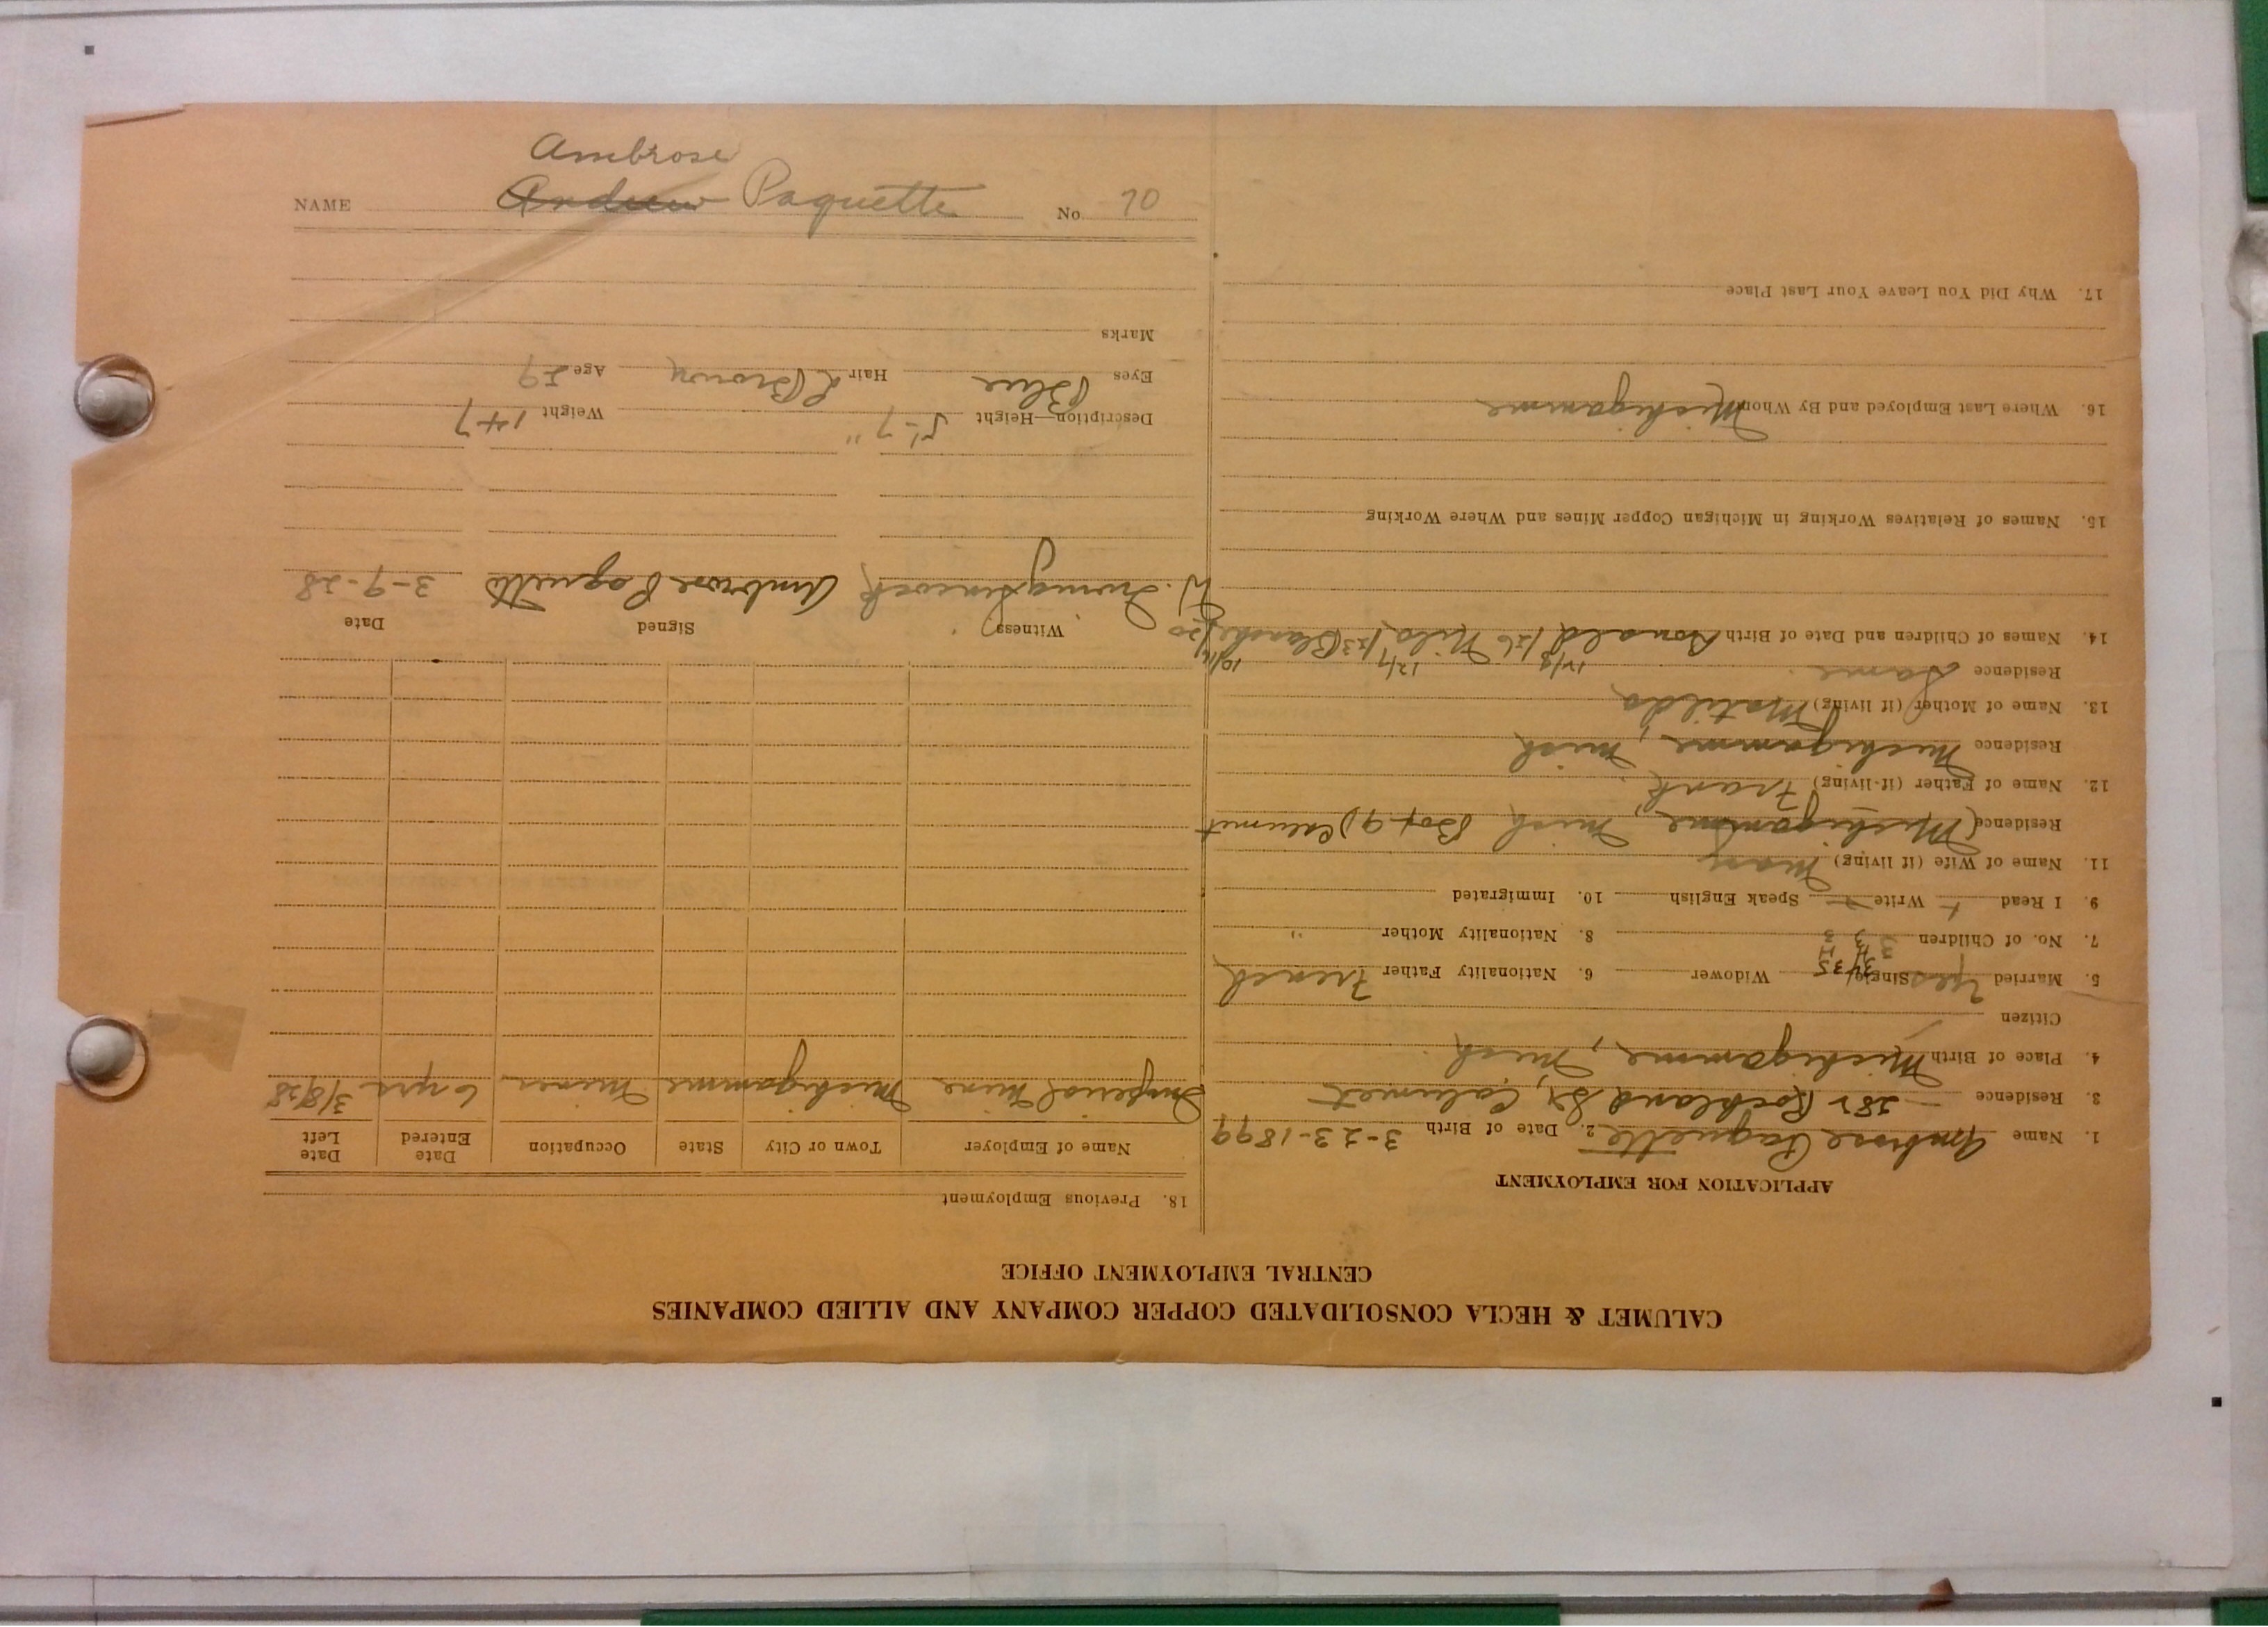 Ambrose
NAME Andrew Paquette No. 70
CALUMET & HECLA CONSOLIDATED COPPER COMPANY AND ALLIED COMPANIES
CENTRAL EMPLOYMENT OFFICE
APPLICATION FOR EMPLOYMENT
1. Name Ambrose Paquette 2. Date of Birth 3-23-1899
3. Residence 282 Rockland St, Calumet
4. Place of Birth Michigamme, Mich
Citizen
5. Married Yes Single Widower 6. Nationality Father French
7. No. of Children 3 8. Nationality Mother "
9. I Read Write Speak English 10. Immigrated
11. Name of Wife (if living) Mary
Residence (Michigamme, Mich Box 9) Calumet
12. Name of Father (if living) Frank
Residence Michigamme, Mich
13. Name of Mother (if living) Matilda
Residence Same
14. Names of Children and Date of Birth Donald 12/8/26 Milo 12/7/23 Blanche 10/16/20
15. Names of Relatives Working in Michigan Copper Mines and Where Working
16. Where Last Employed and By Whom Michigamme
17. Why Did You Leave Your Last Place
18. Previous Employment
Name of Employer Town or City State Occupation Date Entered Date Left
Imperial Mine Michigamme Miner 6 yrs 3/8/28
Witness Signed Date
W. Ambrose Paquette 3-9-28
Description—Height 5'-7" Weight 147
Eyes Blue Hair L Brown Age 29
Marks